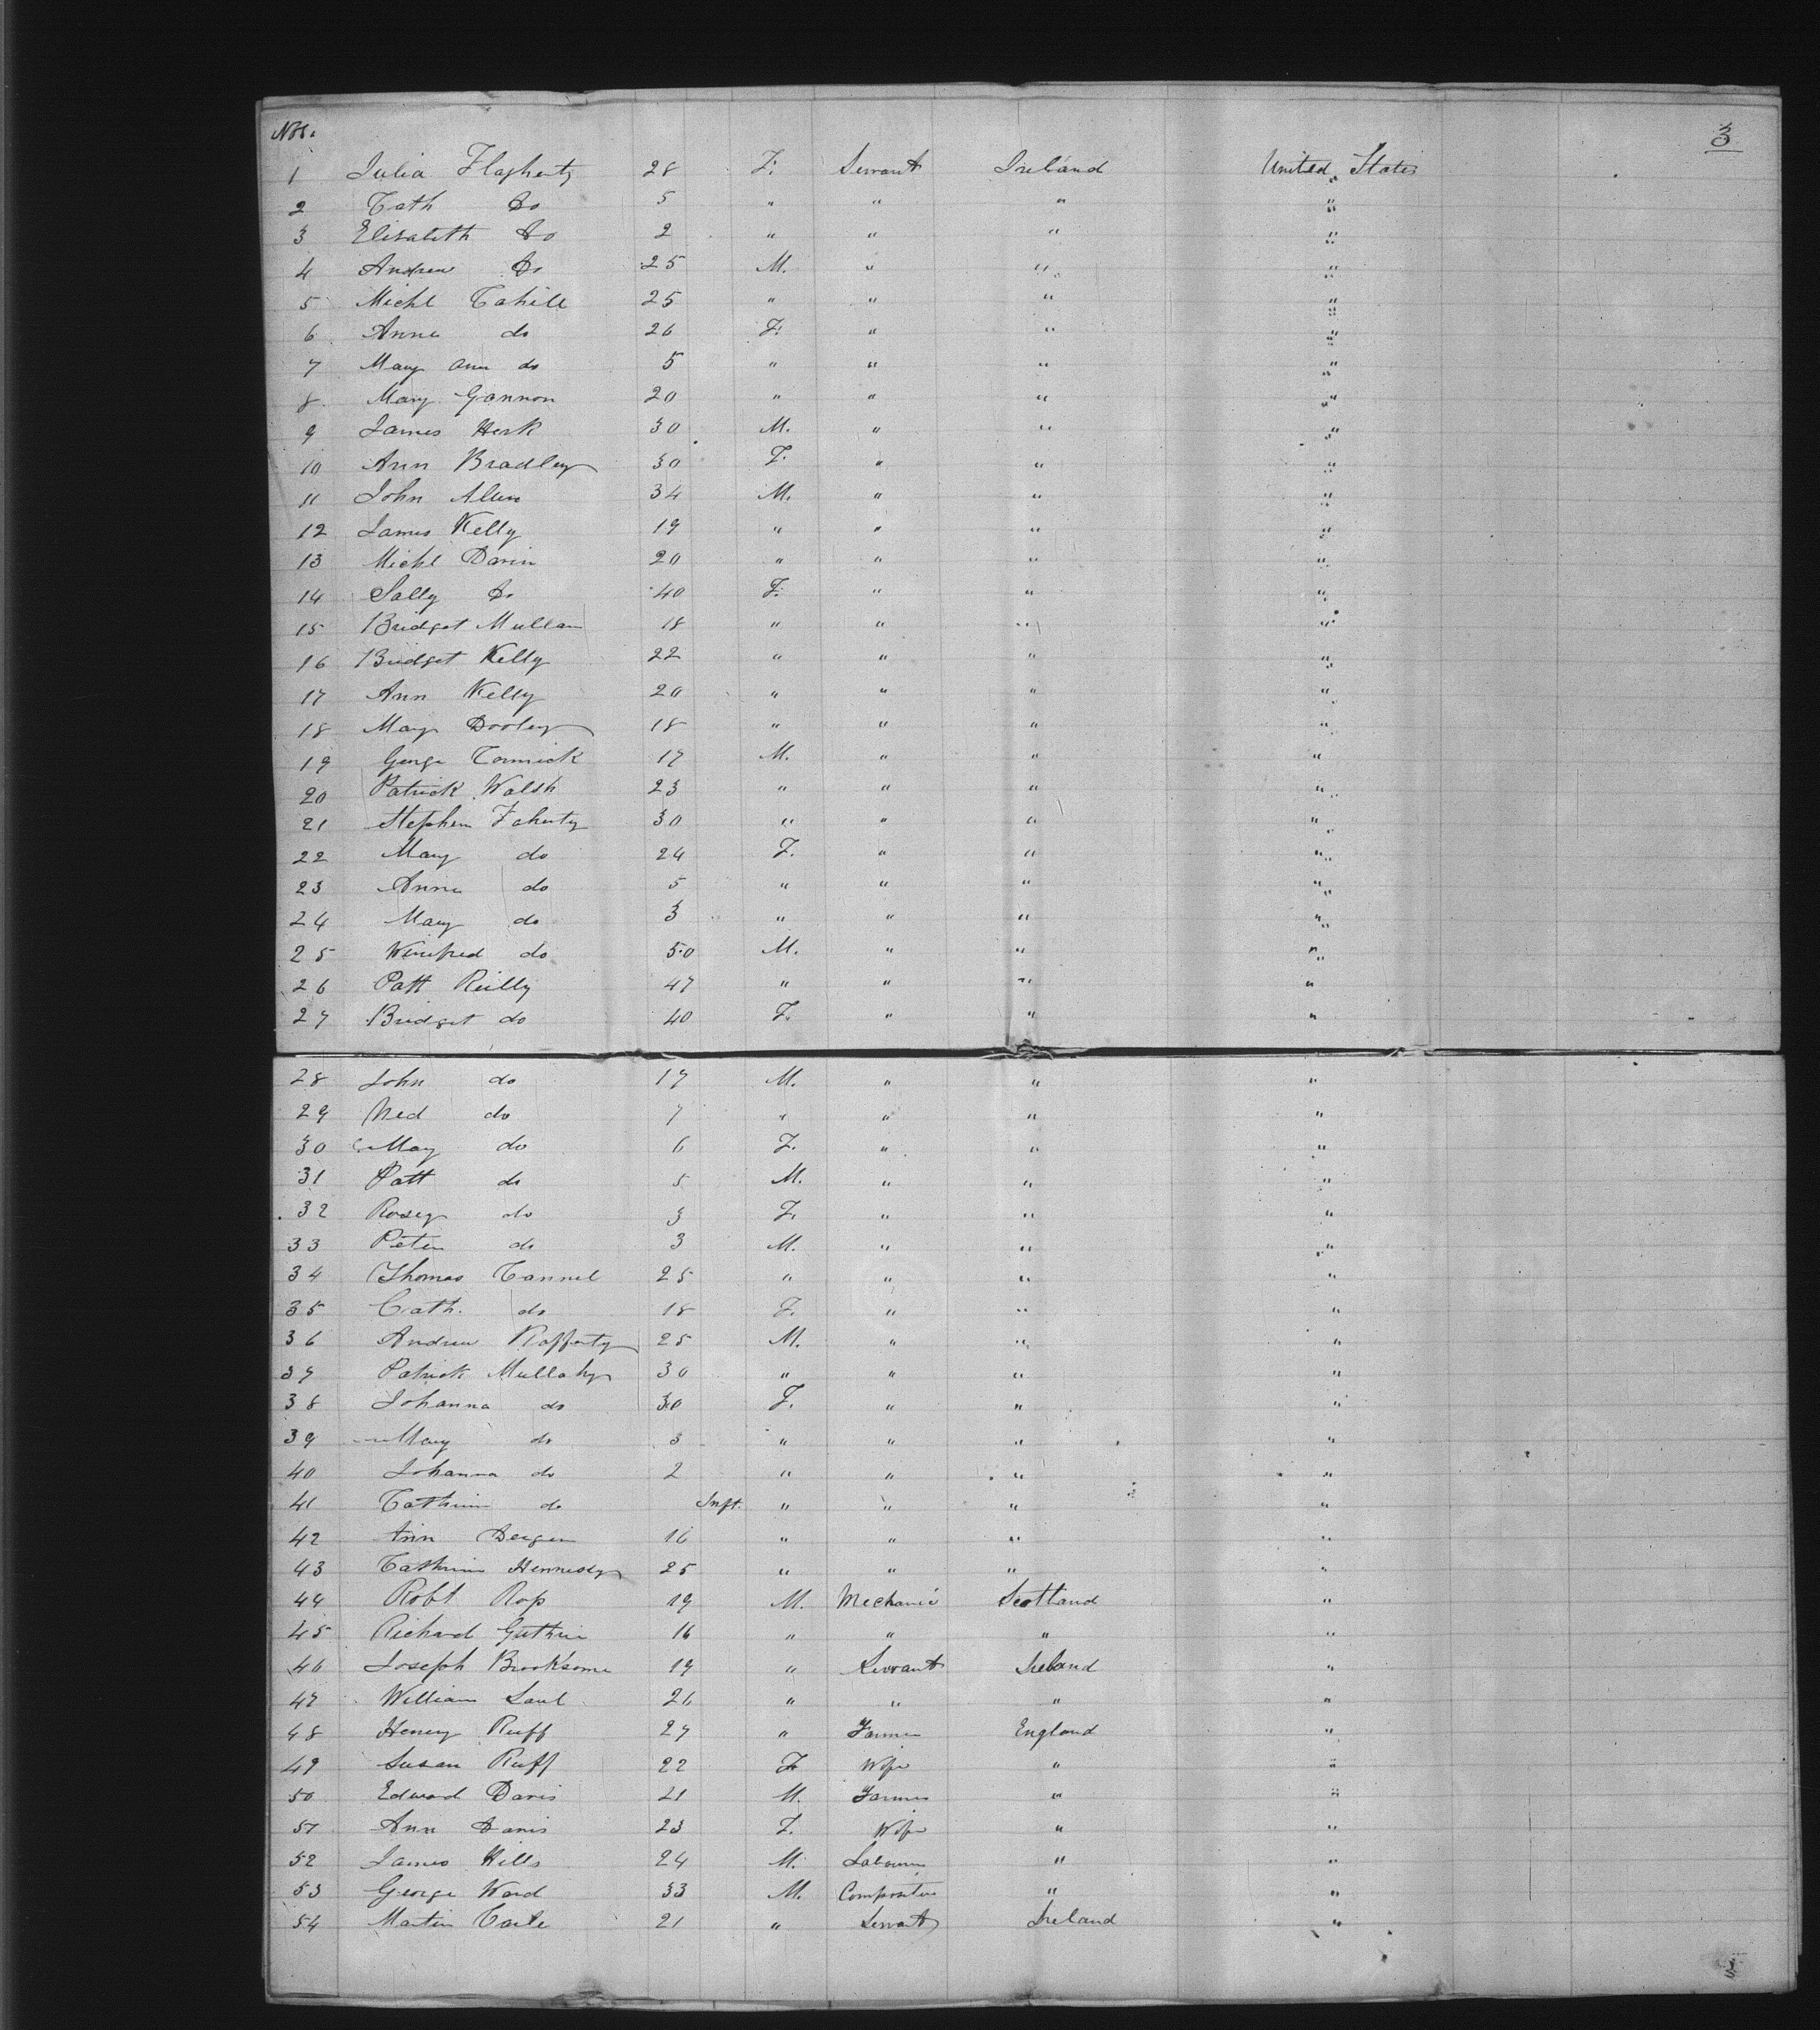 Nos. 3
1 Julia Flagherty 28 F. Servant Ireland United States
2 Cath Do 5 " " " "
3 Elisabeth Do 2 " " " "
4 Andrew Do 25 M. " " "
5 Michl Cahill 25 " " " "
6 Anne do 26 F. " " "
7 Mary Ann do 5 " " " "
8 Mary Gannon 20 " " " "
9 James Herk 30 M. " " "
10 Ann Bradley 30 F. " " "
11 John Allen 34 M. " " "
12 James Kelly 19 " " " "
13 Michl Davin 20 " " " "
14 Sally Do 40 F. " " "
15 Bridget Mullan 18 " " " "
16 Bridget Kelly 22 " " " "
17 Ann Kelly 20 " " " "
18 Mary Dooley 18 " " " "
19 George Cormick 17 M. " " "
20 Patrick Walsh 23 " " " "
21 Stephen Faherty 30 " " " "
22 Mary do 24 F. " " "
23 Anne do 5 " " " "
24 Mary do 3 " " " "
25 Winifred do 50 M. " " "
26 Patt Reilly 47 " " " "
27 Bridget do 40 F. " " "
28 John do 17 M. " " "
29 Ned do 7 " " " "
30 Mary do 6 F. " " "
31 Patt do 5 M. " " "
32 Rosey do 3 F. " " "
33 Peter do 3 M. " " "
34 Thomas Cannel 25 " " " "
35 Cath. do 18 F. " " "
36 Andrew Rafferty 25 M. " " "
37 Patrick Mullahy 30 " " " "
38 Johanna do 30 F. " " "
39 Mary do 3 " " " "
40 Johanna do 2 " " " "
41 Cathrine do Inft. " " " "
42 Ann Bergen 16 " " " "
43 Cathrine Hennesey 25 " " " "
44 Robt Ross 19 M. Mechanic Scotland "
45 Richard Guthrie 16 " " " "
46 Joseph Brooksome 19 " Servant Ireland "
47 William Saul 26 " " " "
48 Henry Ruff 27 " Farmer England "
49 Susan Ruff 22 F. Wife " "
50 Edward Davis 21 M. Farmer " "
51 Ann Davis 23 F. Wife " "
52 James Wills 24 M. Labourer " "
53 George Ward 33 M. Compositor " "
54 Martin 21 " Servant Ireland "